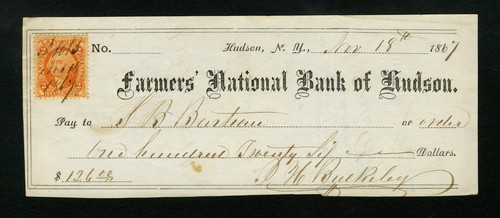 No. Hudson, N. Y., Nov 18th 1867
Farmers' National Bank of Hudson.
Pay to S B Barteau or order
One hundred Twenty Six Dollars.
$ 126